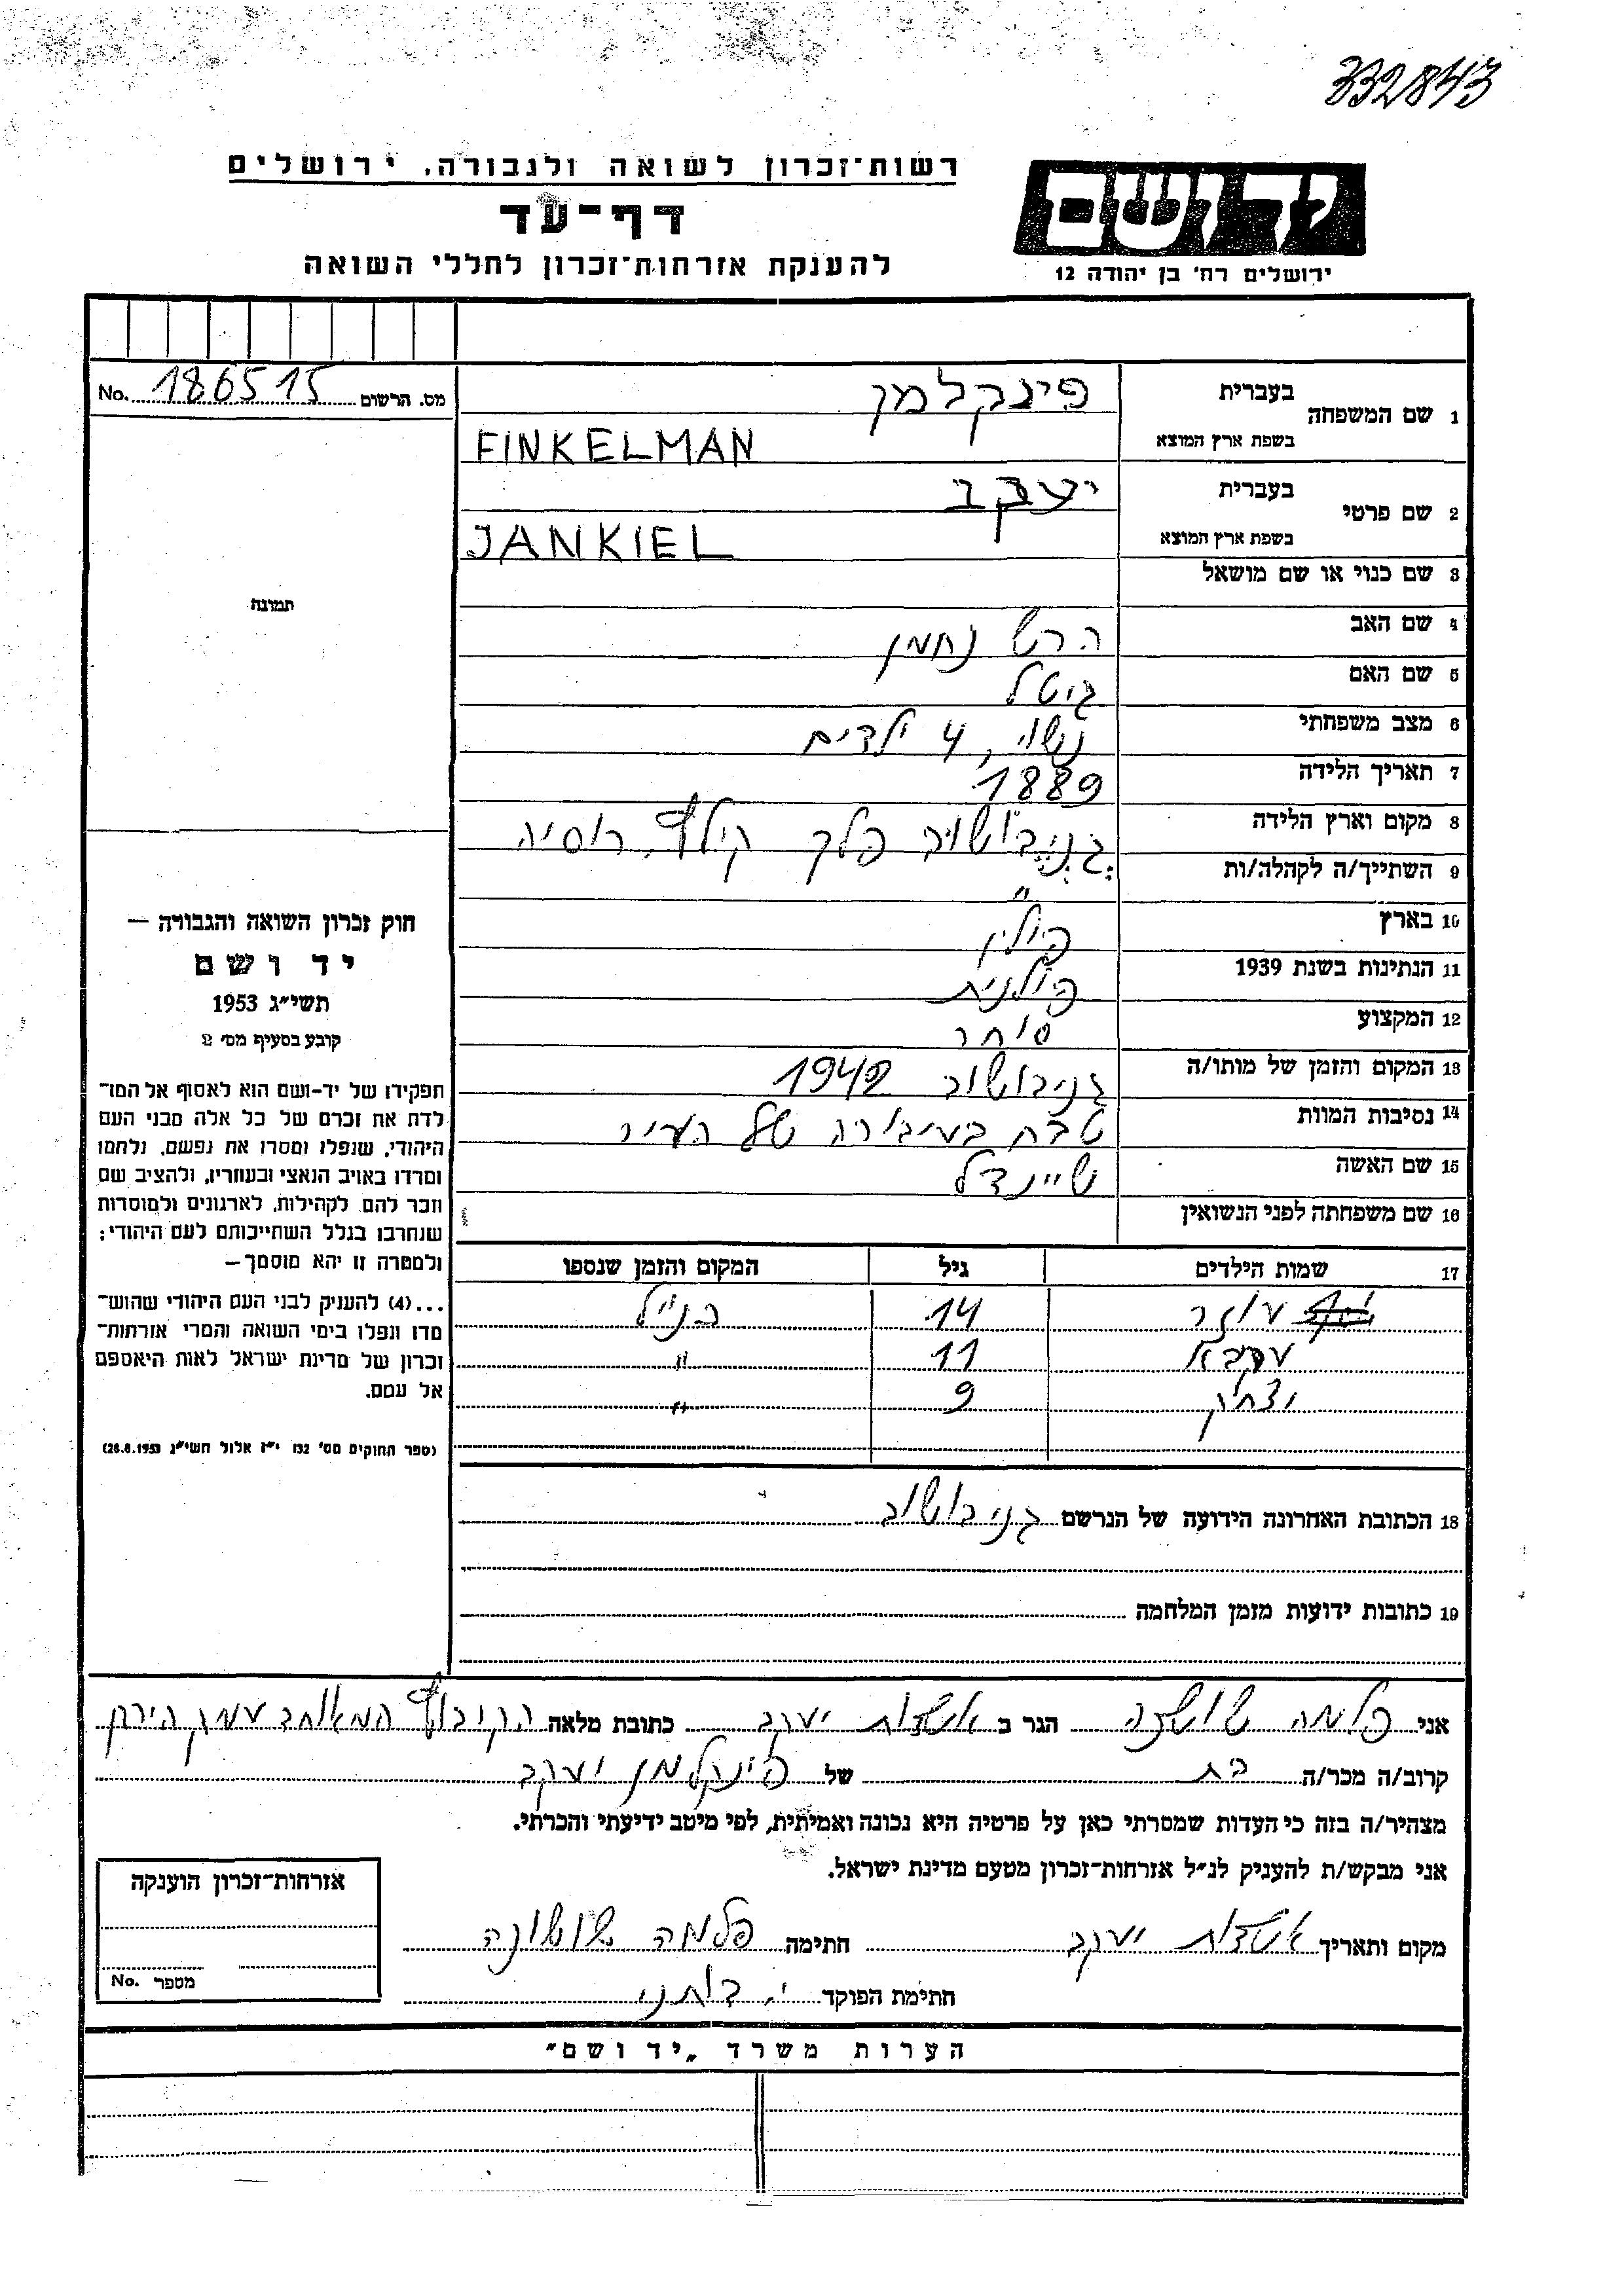 332843
רשות־זכרון לשואה ולגבורה, ירושלים
דף־עד
להענקת אזרחות־זכרון לחללי השואה
יד ושם
ירושלים רח' בן יהודה 12
מס. הרשום 186515 No.
1 שם המשפחה
בעברית פינקלמן
בשפת ארץ המוצא FINKELMAN
2 שם פרטי
בעברית יעקב
בשפת ארץ המוצא JANKIEL
3 שם כנוי או שם מושאל
4 שם האב הרש נחמן
5 שם האם גיטל
6 מצב משפחתי נשוי, 4 ילדים
7 תאריך הלידה 1889
8 מקום וארץ הלידה גניבושוב פלך קילץ, רוסיה
9 השתייך/ה לקהלה/ות "
10 בארץ פולין
11 הנתינות בשנת 1939 פולנית
12 המקצוע סוחר
13 המקום והזמן של מותו/ה גניבושוב 1942
14 נסיבות המוות טבח בעיירה של העיר
15 שם האשה שיינדל
16 שם משפחתה לפני הנשואין
17 שמות הילדים גיל המקום והזמן שנספו
עוזר 14 כנ"ל
עקיבא 11 "
יצחק 9 "
18 הכתובת האחרונה הידועה של הנרשם גניבושוב
19 כתובות ידועות מזמן המלחמה
תמונה
חוק זכרון השואה והגבורה —
יד ושם
תשי״ג 1953
קובע בסעיף מס׳ 2
תפקידו של יד-ושם הוא לאסוף אל המו־
לדת את זכרם של כל אלה מבני העם
היהודי, שנפלו ומסרו את נפשם, נלחמו
ומרדו באויב הנאצי ובעוזריו, ולהציב שם
וזכר להם, לקהילות, לארגונים ולמוסדות
שנחרבו בגלל השתייכותם לעם היהודי;
ולמטרה זו יהא מוסמך —
...(4) להעניק לבני העם היהודי שהוש־
מדו ונפלו בימי השואה והמרי אזרחות־
זכרון של מדינת ישראל לאות היאספם
אל עמם.
(ספר החוקים מס׳ 132 י״ז אלול תשי״ג 28.8.1953)
אני פלמה שושנה הגר ב אשדות יעקב כתובת מלאה הקיבוץ המאוחד עמק הירדן
קרוב/ה מכר/ה בת של פינקלמן יעקב
מצהיר/ה בזה כי העדות שמסרתי כאן על פרטיה היא נכונה ואמיתית, לפי מיטב ידיעתי והכרתי.
אני מבקש/ת להעניק לנ״ל אזרחות־זכרון מטעם מדינת ישראל.
מקום ותאריך אשדות יעקב חתימה פלמה שושנה
חתימת הפוקד
אזרחות־זכרון הוענקה
מספר No.
הערות משרד „יד ושם״